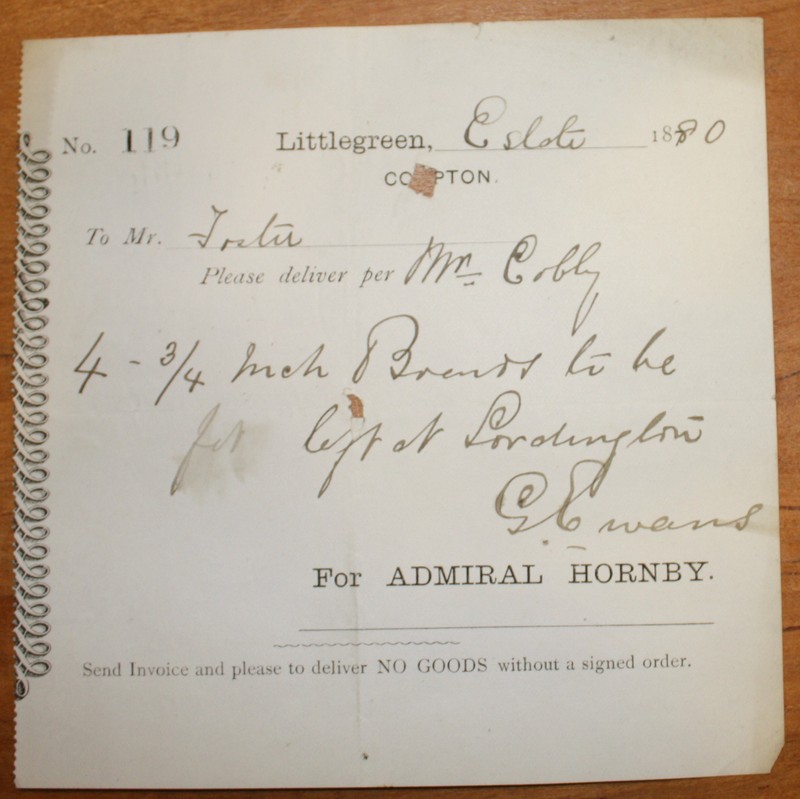 No. 119 Littlegreen, Estate 1880
COMPTON.
To Mr. Foster
Please deliver per Mr Cobby
4 - 3/4 Inch Boards to be
left at Lordington
G. Ewans
For ADMIRAL HORNBY.
Send Invoice and please to deliver NO GOODS without a signed order.